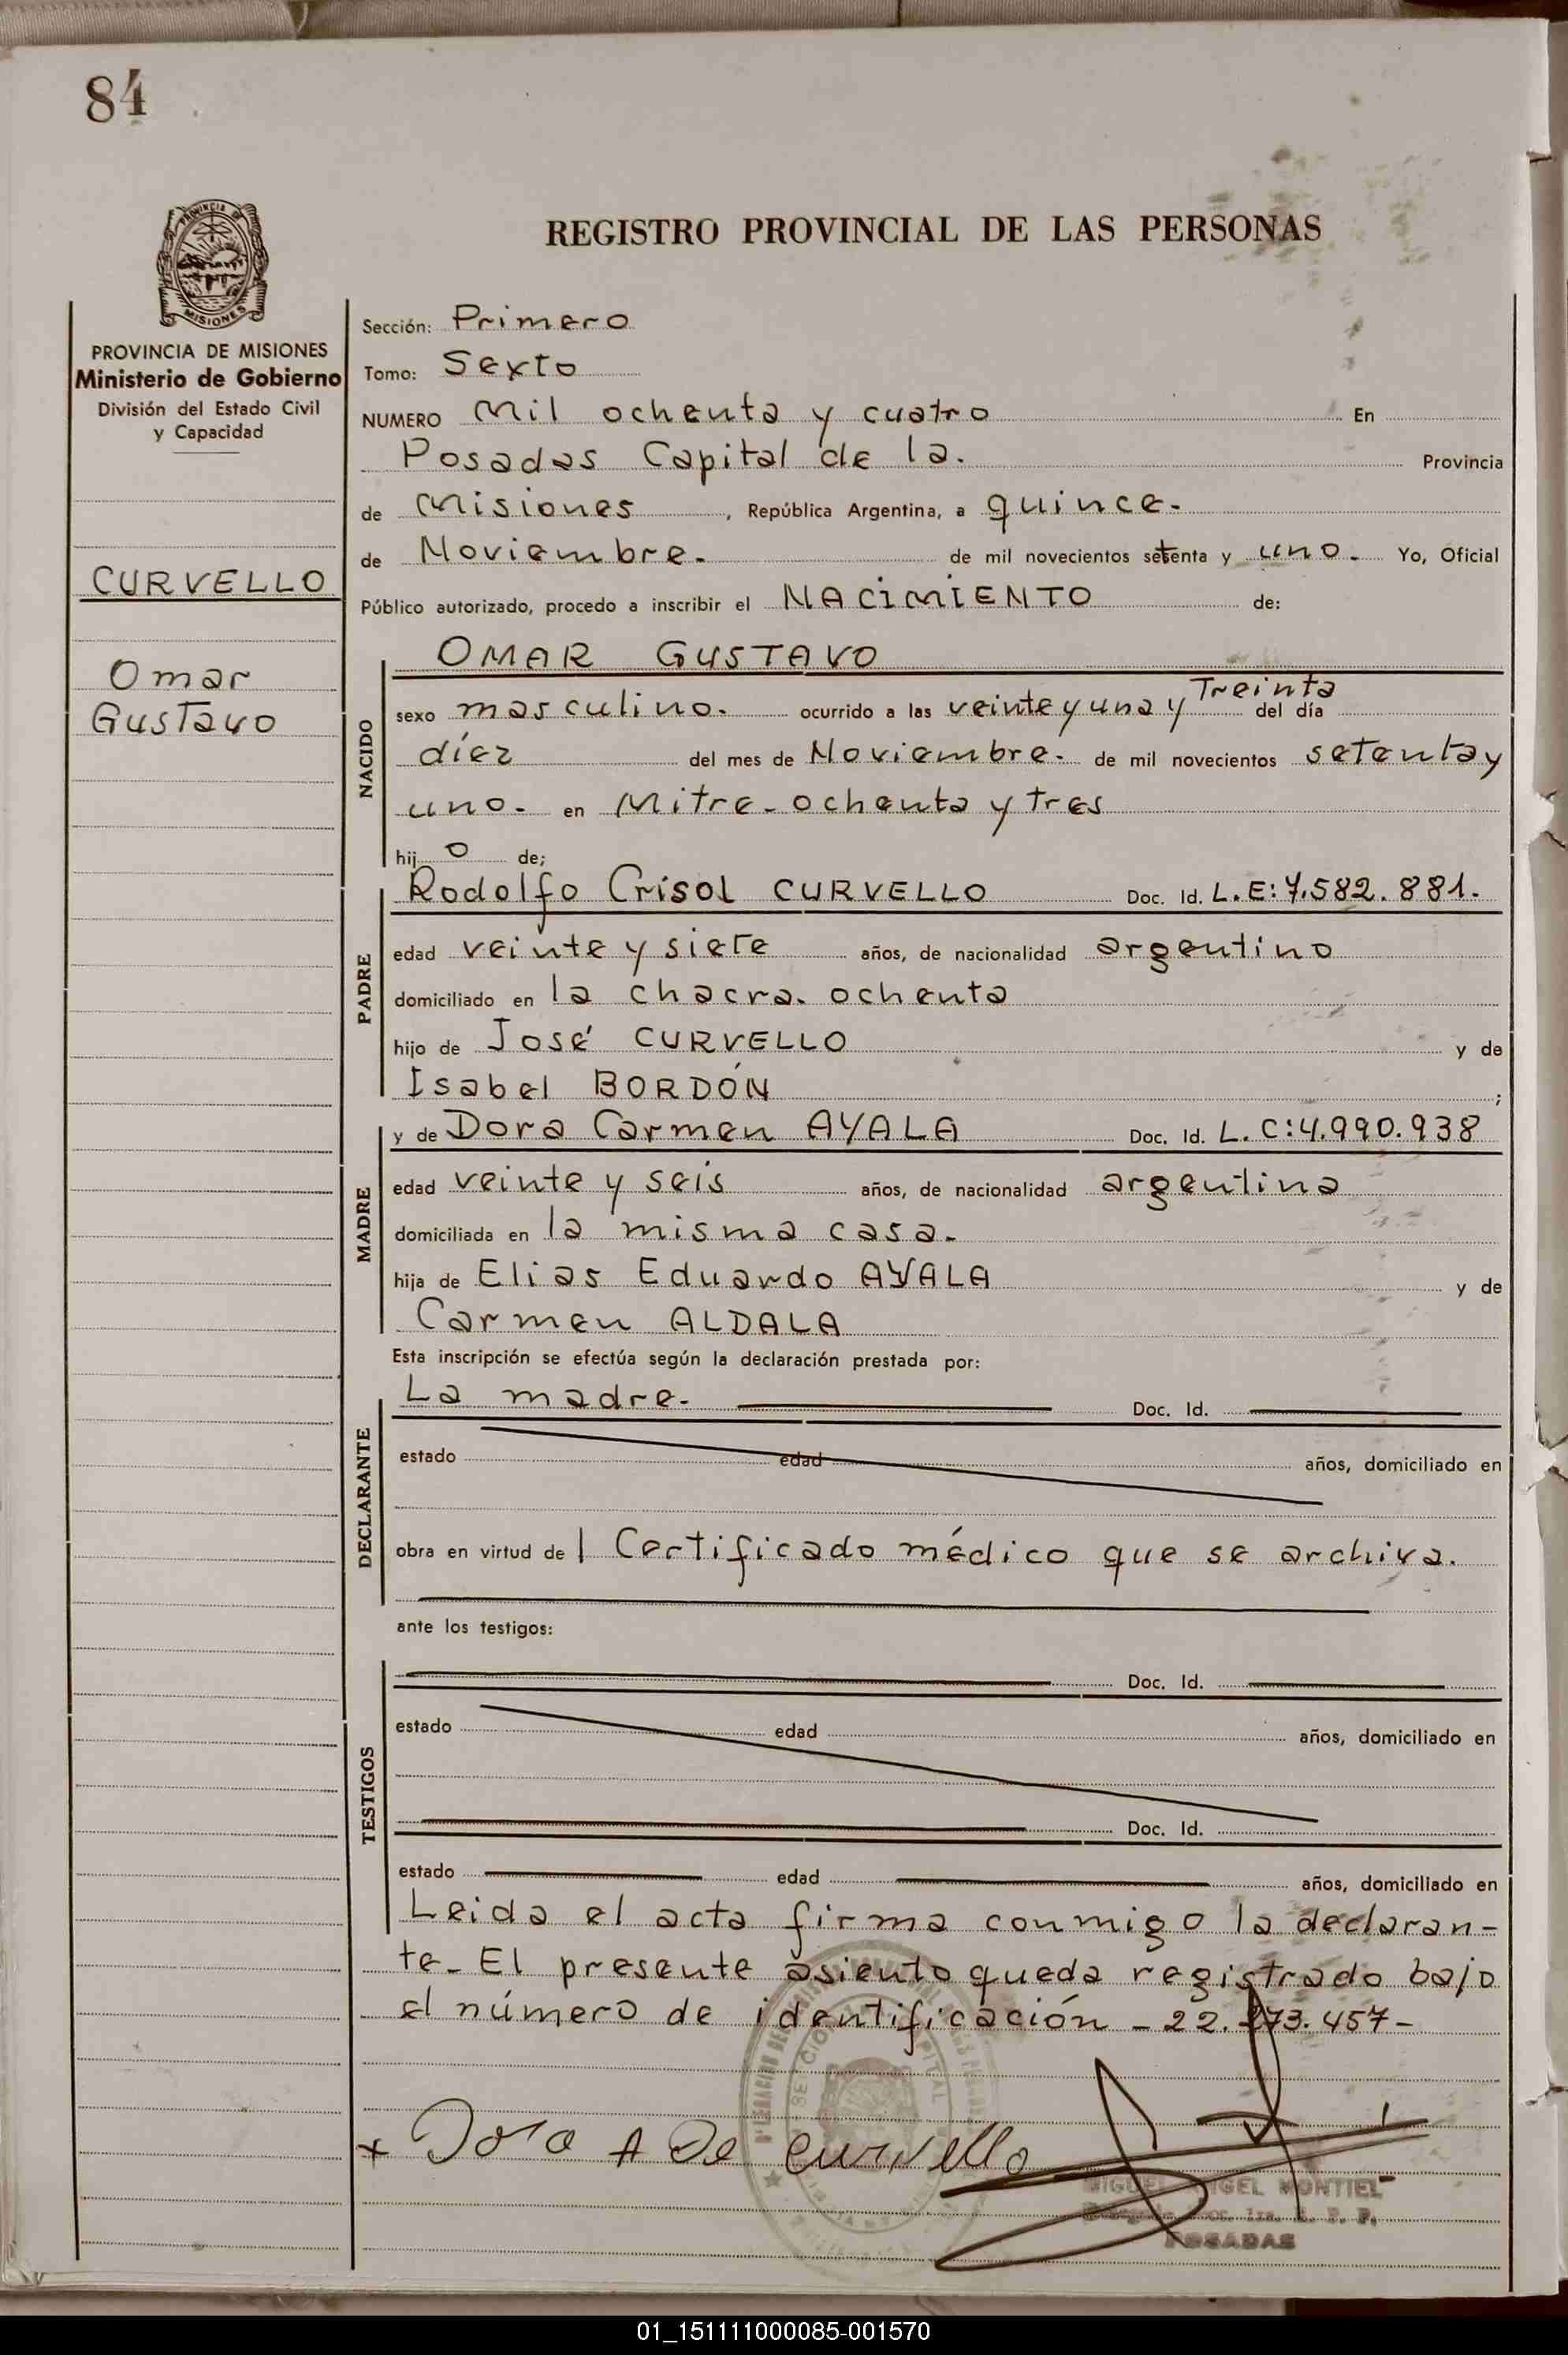 84
PROVINCIA DE
MISIONES
REGISTRO PROVINCIAL DE LAS PERSONAS
PROVINCIA DE MISIONES
Ministerio de Gobierno
División del Estado Civil
y Capacidad
CURVELLO
Omar
Gustavo
Sección: Primero
Tomo: Sexto
NUMERO Mil ochenta y cuatro En
Posadas Capital de la. Provincia
de Misiones, República Argentina, a quince.
de Noviembre. de mil novecientos setenta y uno. Yo, Oficial
Público autorizado, procedo a inscribir el NACIMIENTO de:
NACIDO
OMAR GUSTAVO
sexo masculino. ocurrido a las veinte y una y Treinta del día
díez del mes de Noviembre. de mil novecientos setenta y
uno. en Mitre-ochenta y tres
hij o de;
PADRE
Rodolfo Crisol CURVELLO Doc. Id. L.E: 7.582.881.
edad veinte y siete años, de nacionalidad argentino
domiciliado en la chacra. ochenta
hijo de José CURVELLO y de
Isabel BORDÓN ;
MADRE
y de Dora Carmen AYALA Doc. Id. L.C: 4.990.938
edad veinte y seis años, de nacionalidad argentina
domiciliada en la misma casa.
hija de Elias Eduardo AYALA y de
Carmen ALDALA
Esta inscripción se efectúa según la declaración prestada por:
DECLARANTE
La madre. Doc. Id.
estado edad años, domiciliado en
obra en virtud de l Certificado médico que se archiva.
ante los testigos:
TESTIGOS
Doc. Id.
estado edad años, domiciliado en
Doc. Id.
estado edad años, domiciliado en
Leida el acta firma conmigo la declaran-
te. El presente asiento queda registrado bajo
el número de identificación - 22.273.457-
x Dora A De Curvello
MIGUEL ANGEL MONTIEL
POSADAS
01_151111000085-001570